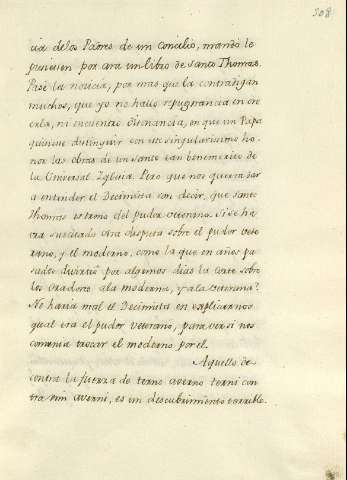 308
cia de los Padres de un Concilio, mandó le
pusiesen por ara un libro de Santo Thomas.
Pase la noticia, por mas que la contradigan
muchos, que yo no hallo repugnancia en cre
erla, ni encuentro disonancia, en que un Papa
quisiese distinguir con este singularisimo ho-
nor las obras de un Santo tan benemerito de
la Universal Iglesia. Pero que nos querra dar
a entender el Decimista con decir, que Santo
Thomas es tomo del pudor veterano. Si se ha
vra suscitado otra disputa sobre el pudor vete
rano, y el moderno, como la que en años pa
sados divirtió por algunos dias la Corte sobre
los oradores a la moderna, y a la veterana?
No haria mal el Decimista en explicarnos
qual era el pudor veterano, para ver si nos
convenia trocar el moderno por el.
Aquello de
contra la fuerza de terno averno terni con
tra vim averni, es un descubrimiento terrible.